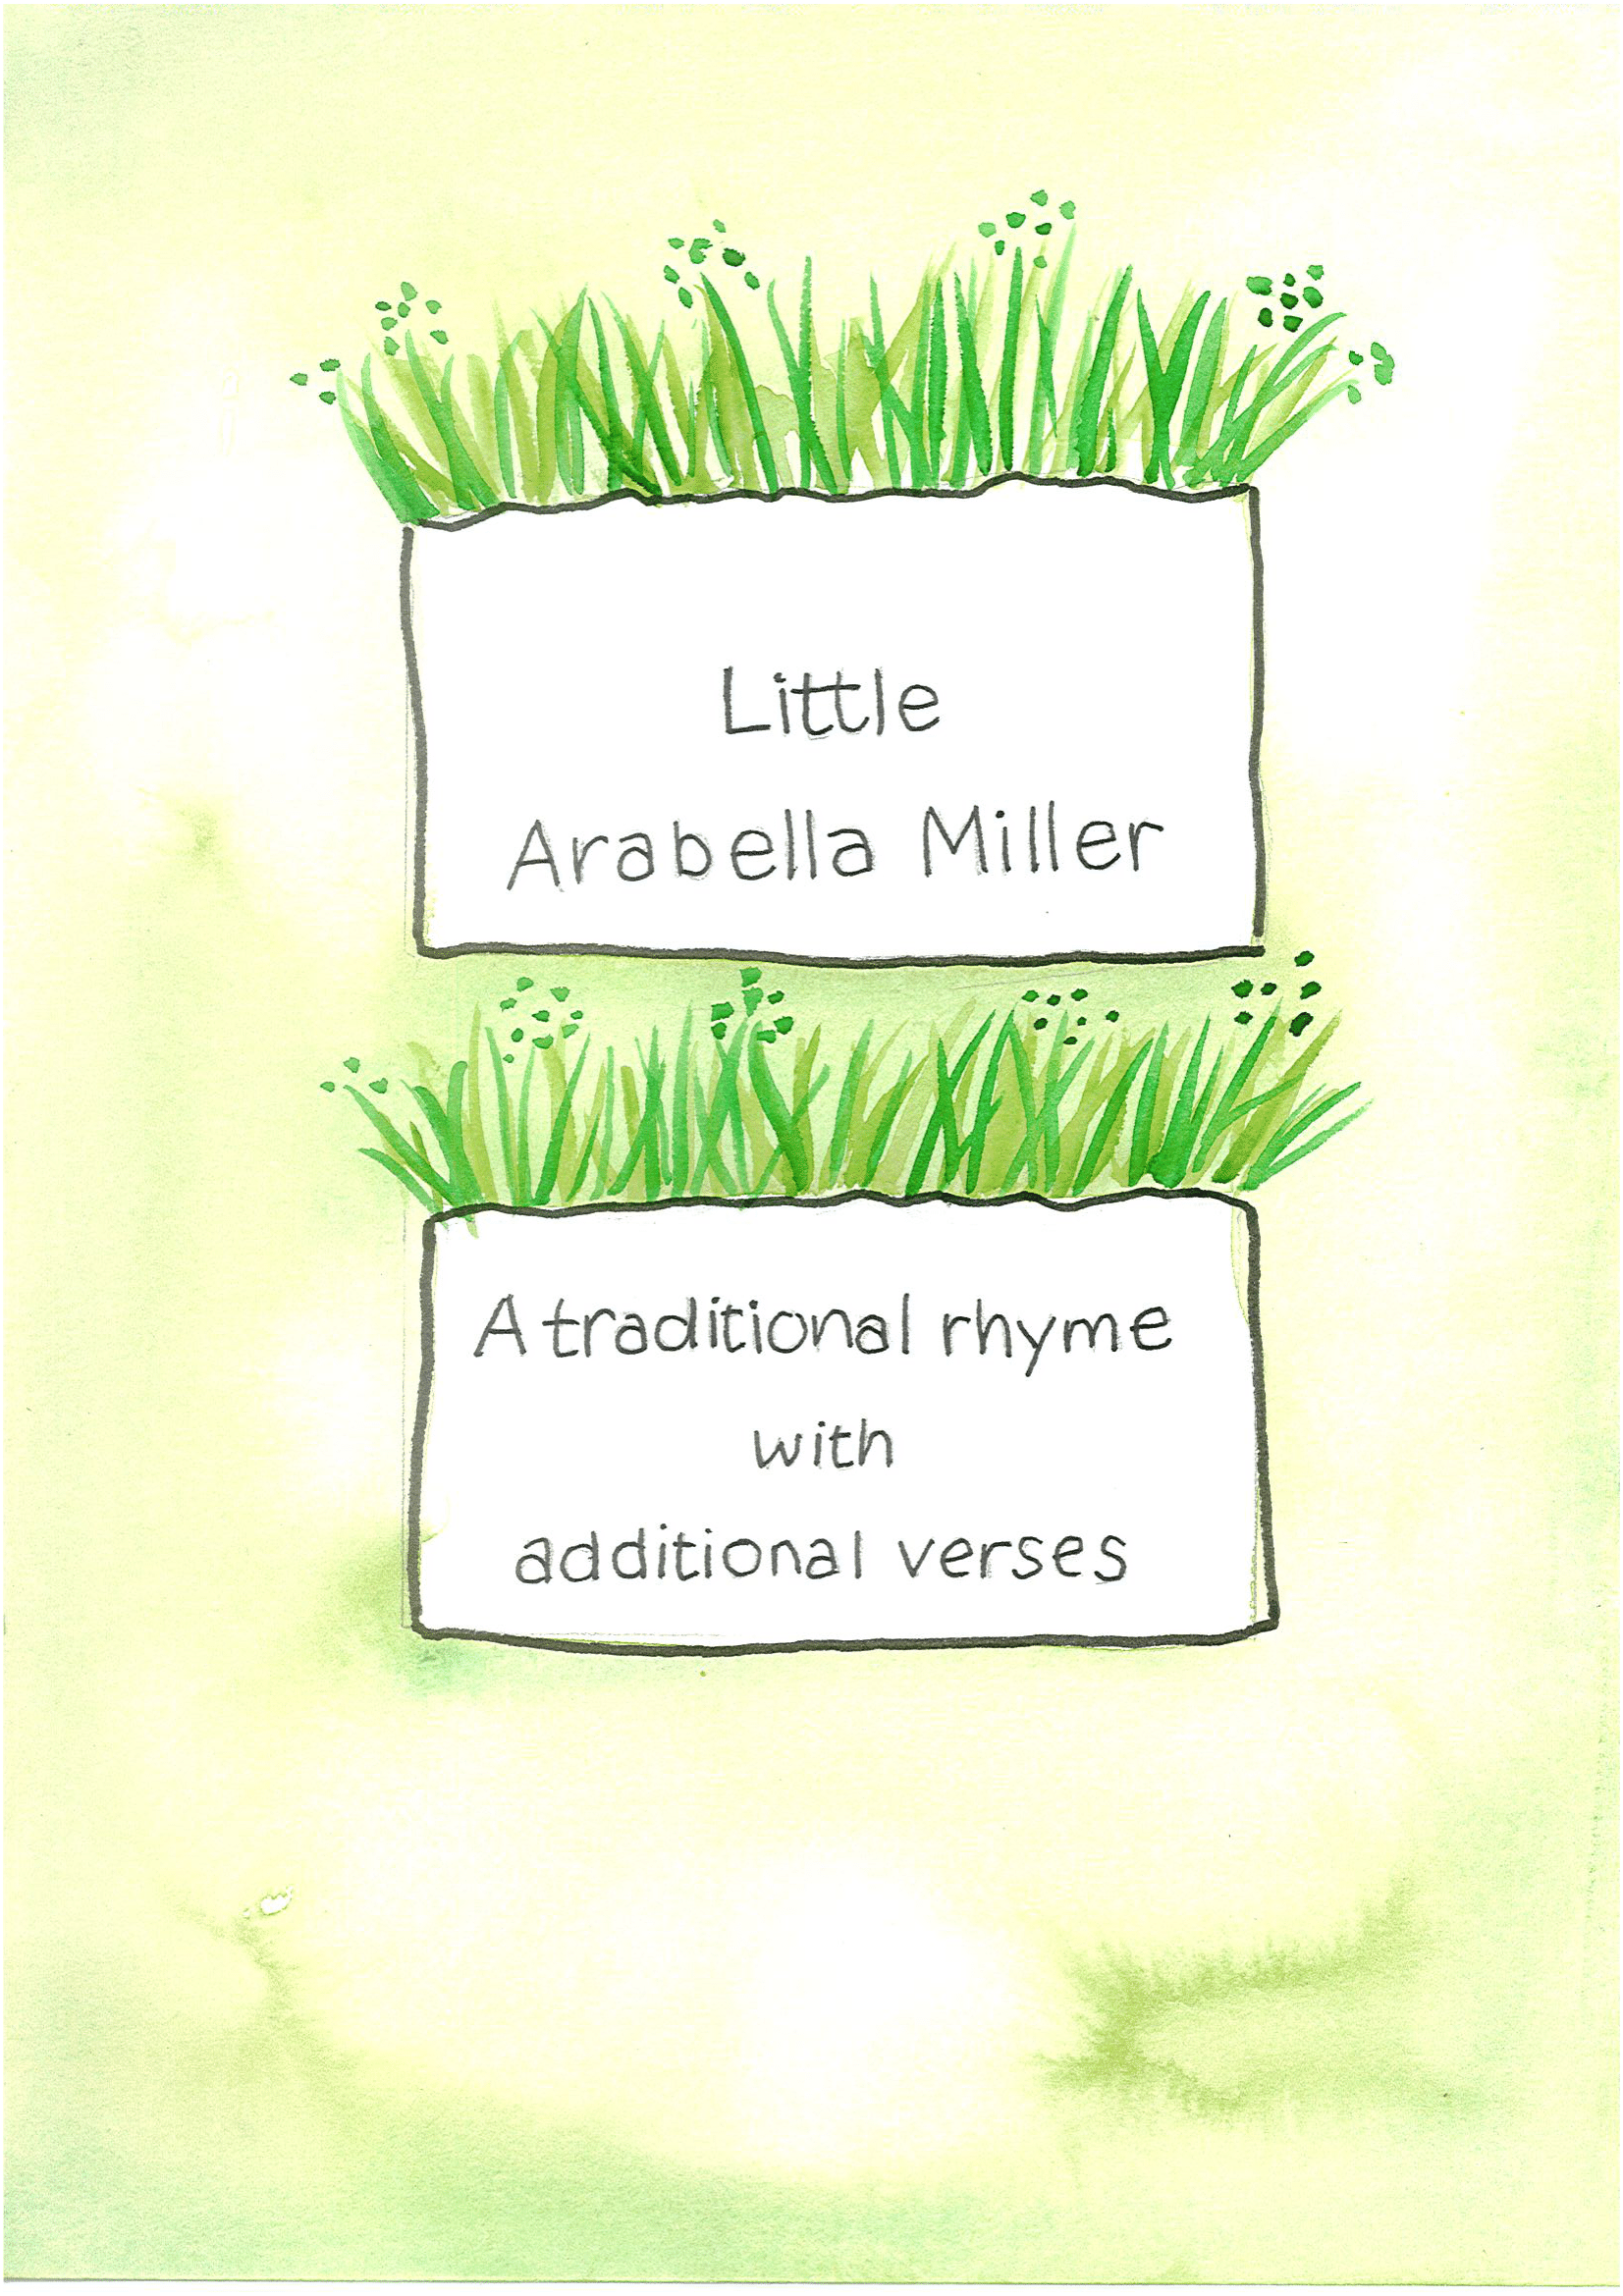 Little
Arabella Miller
A traditional rhyme
with
additional verses